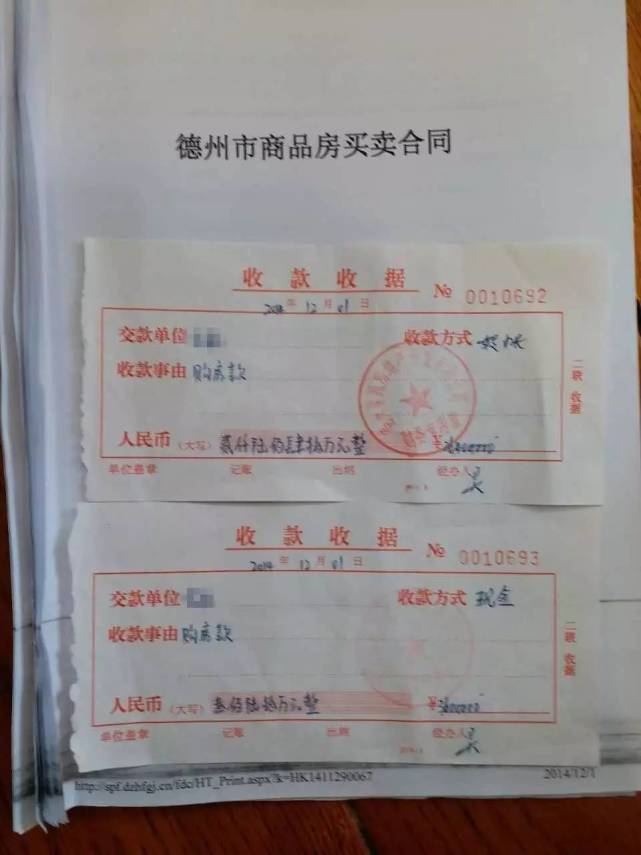 德州市商品房买卖合同
收款收据 № 0010692
2014年12月01日
交款单位 收款方式 转账
收款事由 购房款
人民币（大写）贰仟陆佰肆拾万元整
单位盖章 记账 出纳 经办人
二联 收据
收款收据 № 0010693
2014年12月01日
交款单位 收款方式 现金
收款事由 购房款
人民币（大写）叁佰陆拾万元整 ￥3600000
单位盖章 记账 出纳 经办人
二联 收据
http://spf.dzhfgj.cn/fdc/HT_Print.aspx?k=HK1411290067 2014/12/1